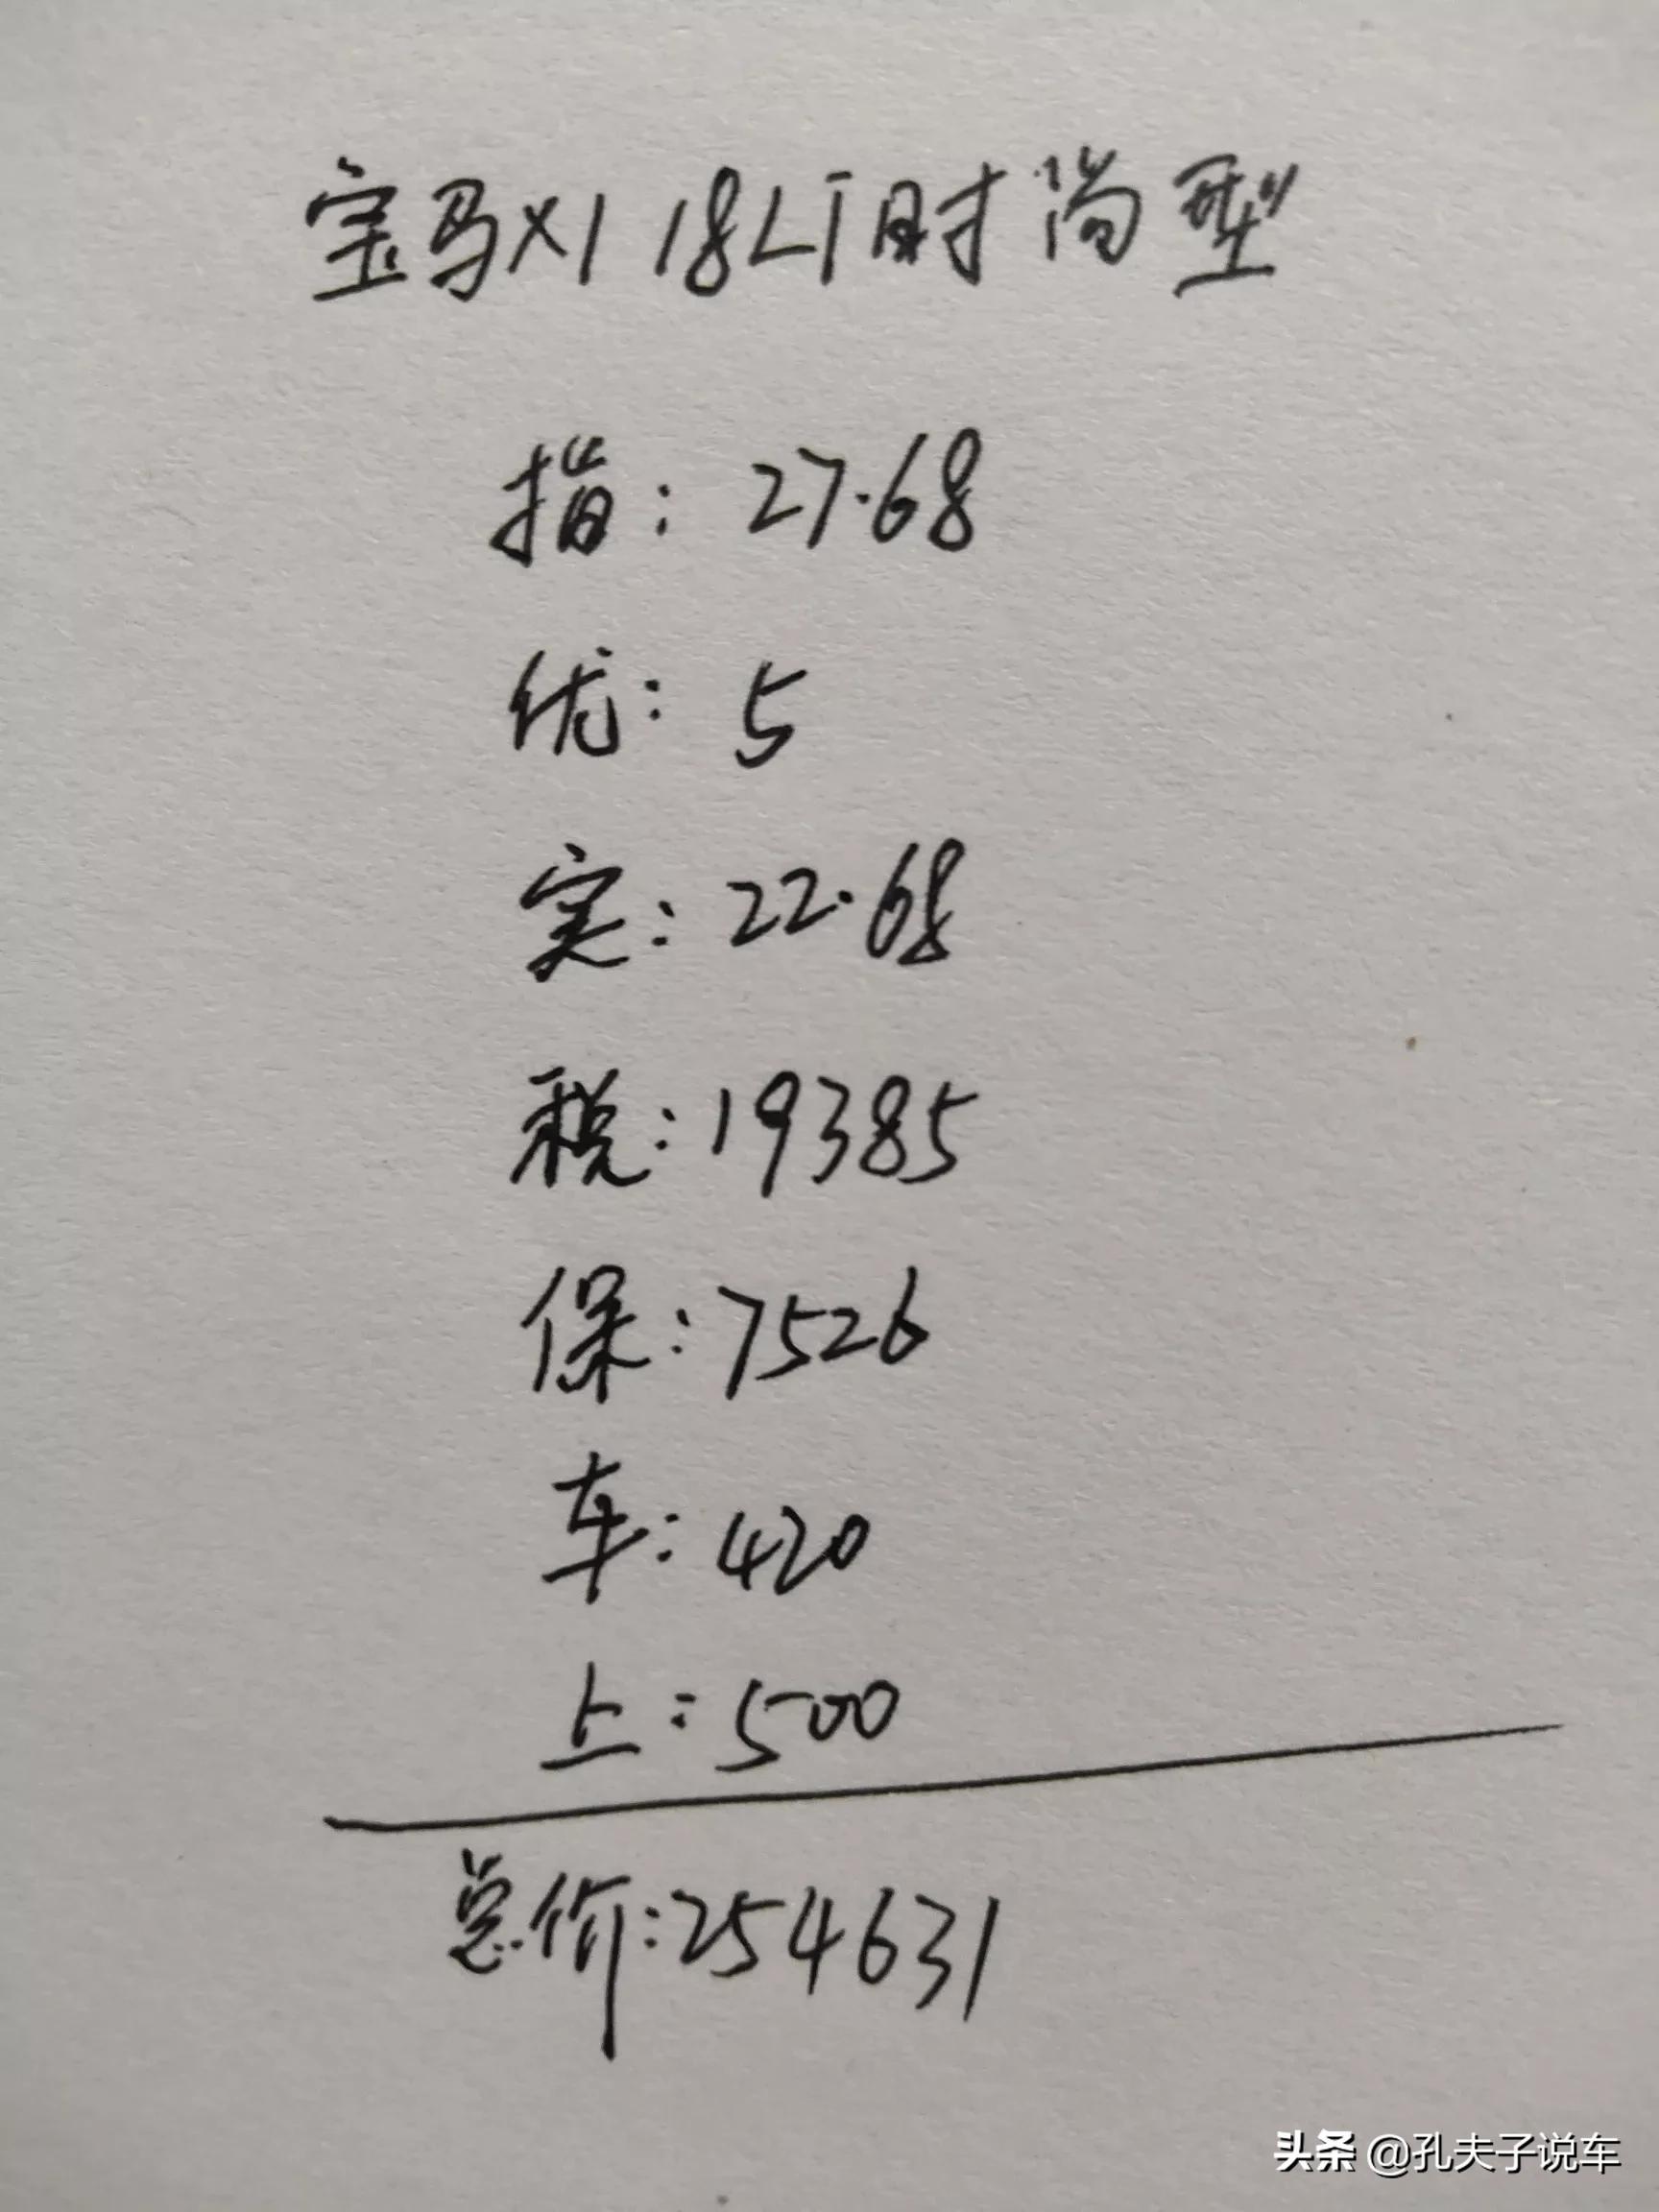 宝马X1 18Li时尚型
指：27.68
优：5
实：22.68
税：19385
保：7526
车：420
上：500
总价：254631
头条 @孔夫子说车